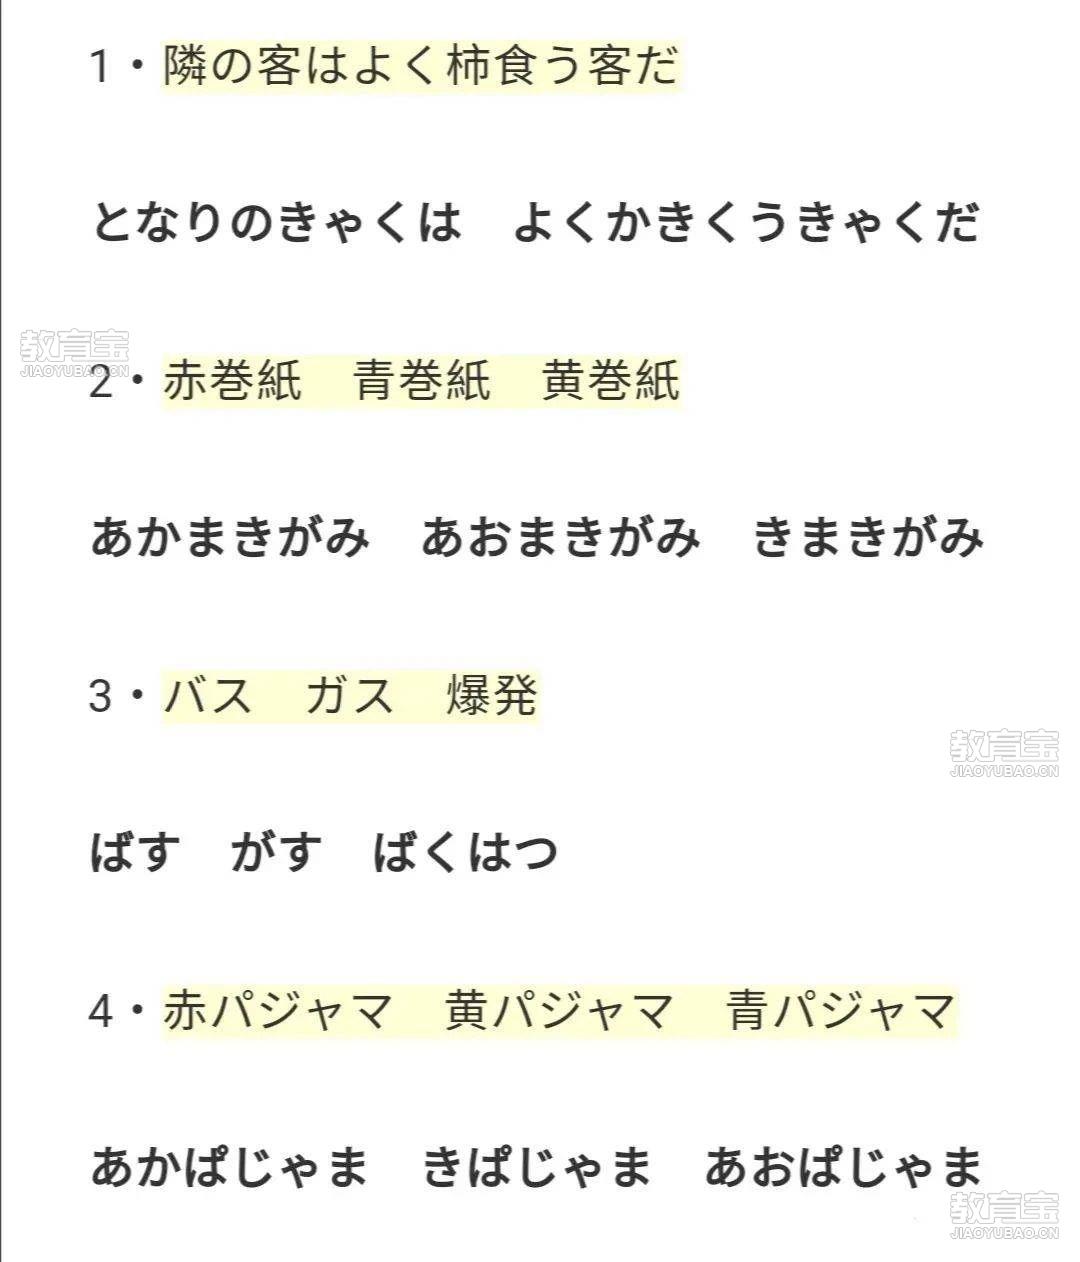 1・隣の客はよく柿食う客だ
となりのきゃくは　よくかきくうきゃくだ
教育宝
JIAOYUBAO.CN
2・赤巻紙　青巻紙　黄巻紙
あかまきがみ　あおまきがみ　きまきがみ
3・バス　ガス　爆発
教育宝
JIAOYUBAO.CN
ばす　がす　ばくはつ
4・赤パジャマ　黄パジャマ　青パジャマ
あかぱじゃま　きぱじゃま　あおぱじゃま
教育宝
JIAOYUBAO.CN